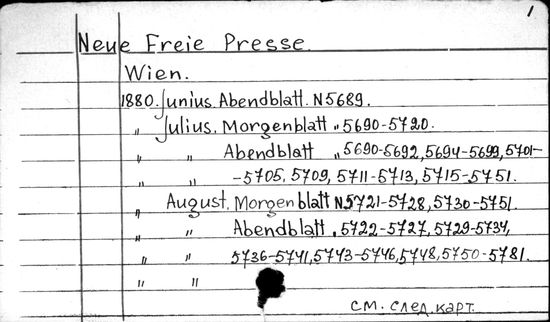 1
Neue Freie Presse.
Wien.
1880. Junius. Abendblatt. N 5689.
„ Julius. Morgenblatt „ 5690-5720.
„ „ Abendblatt „ 5690-5692, 5694-5699, 5701-
„ „ -5705, 5709, 5711-5713, 5715-5751.
„ August. Morgenblatt N 5721-5728, 5730-5751.
„ „ Abendblatt „ 5722-5727, 5729-5734,
„ „ 5736-5741, 5743-5746, 5748, 5750-5781.
„ „
см. след. карт.